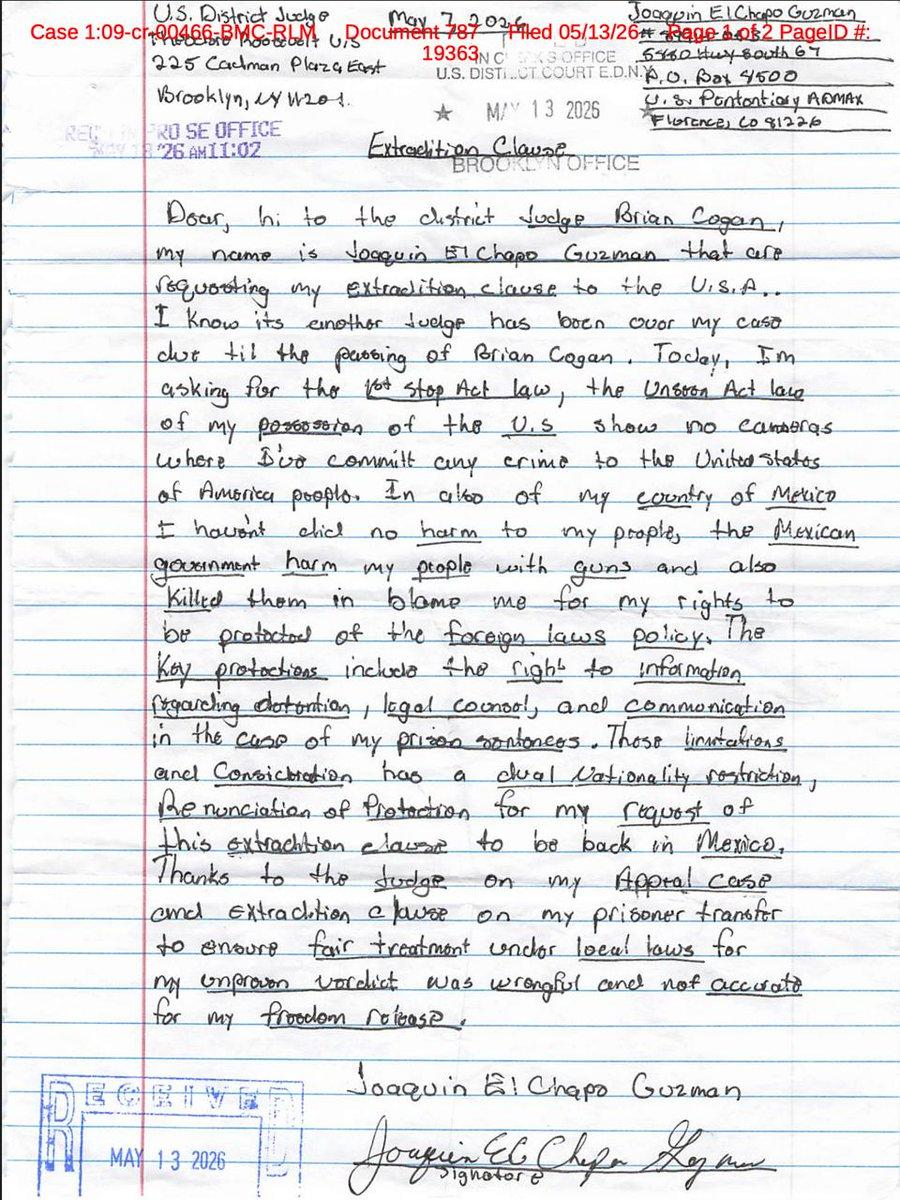 U.S. District Judge
May 7, 2026
Joaquin El Chapo Guzman
Case 1:09-cr-00466-BMC-RLM Document 787 Filed 05/13/26 Page 1 of 2 PageID #: 19363
Theodore Roosevelt U.S
225 Cadman Plaza East
Brooklyn, NY 11201.
OFFICE
U.S. DISTRICT COURT E.D.N.Y
★ MAY 13 2026 ★
BROOKLYN OFFICE
5880 Hwy South 67
P.O. Box 8500
U.S. Pentontiary ADMAX
Florence, CO 81226
PRO SE OFFICE
'26 AM11:02
Extradition Clause
Dear, hi to the district Judge Brian Cogan,
my name is Joaquin El Chapo Guzman that are
requesting my extradition clause to the U.S.A..
I know its another Judge has been over my case
due til the passing of Brian Cogan. Today, I'm
asking for the 1st stop Act law, the Unseen Act law
of my possession of the U.S show no cameras
where I've committ any crime to the United states
of America people. In also of my country of Mexico
I haven't did no harm to my people, the Mexican
government harm my people with guns and also
killed them in blame me for my rights to
be protected of the foreign laws policy. The
Key protections include the right to information
regarding detention, legal counsel, and communication
in the case of my prison sentences. These limitations
and Consideration has a dual Nationality restriction,
Renunciation of Protection for my request of
this extradition clause to be back in Mexico.
Thanks to the Judge on my Appeal case
and extradition clause on my prisoner transfer
to ensure fair treatment under local laws for
my unproven verdict was wrongful and not accurate
for my freedom release.
Joaquin El Chapo Guzman
Joaquin El Chapo Guzman
Signature
RECEIVED
MAY 13 2026